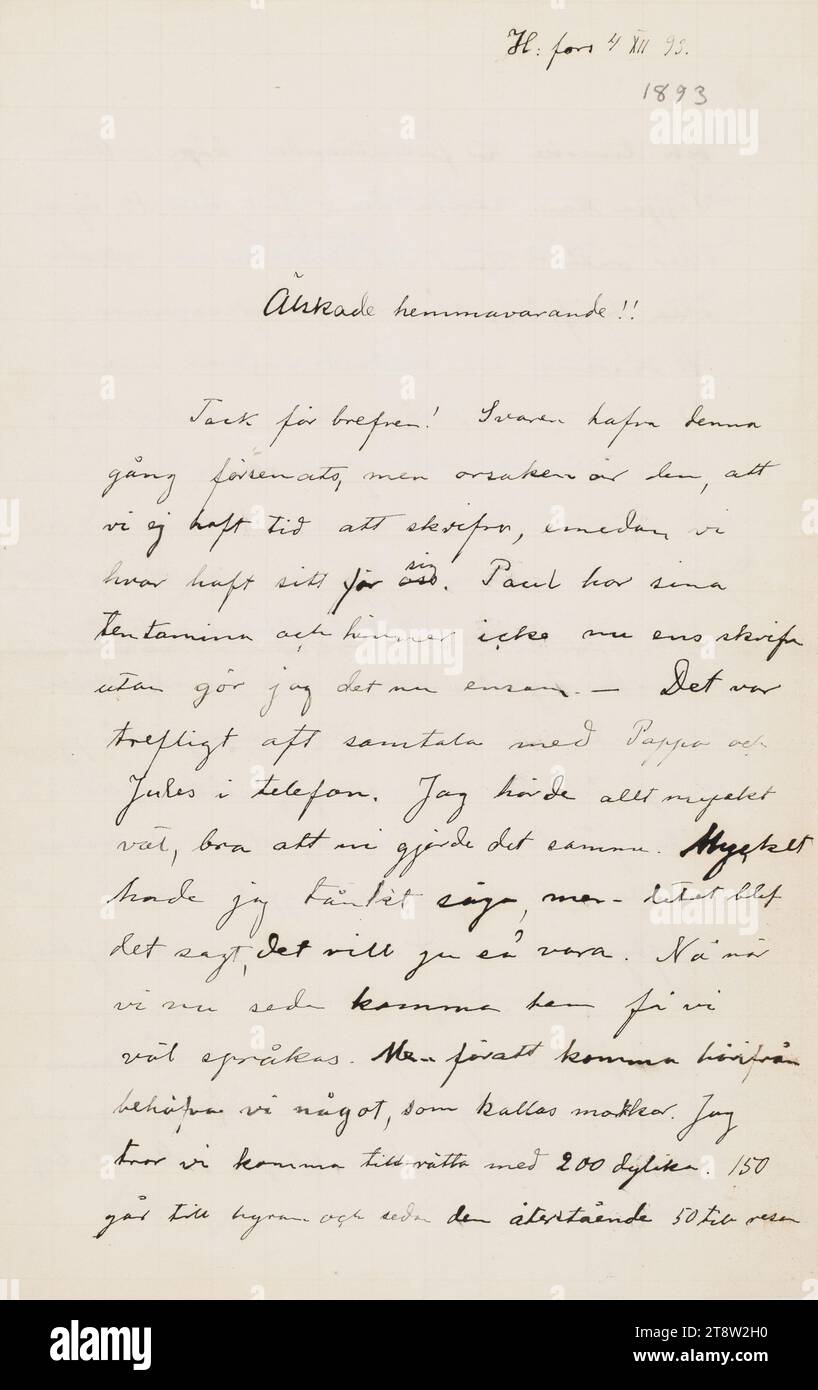 H:fors 4 XII 93.
1893
Älskade hemmavarande!!
Tack för brefven! Svaren hafva denna
gång försenats, men orsaken är den, att
vi ej haft tid att skrifva, emedan vi
hvar haft sitt för sig. Paul har sina
tentamina och hinner icke nu ens skrifva
utan gör jag det nu ensam. – Det var
trefligt att samtala med Pappa och
Jules i telefon. Jag hörde allt mycket
väl, bra att ni gjorde det samma. Mycket
hade jag tänkt säga, men – intet blef
det sagt, det vill ju så vara. Nå när
vi nu sedan komma hem få vi
väl språkas. Men för att komma härifrån
behöfva vi något, som kallas markkor. Jag
tror vi komma till rätta med 200 dylika. 150
går till hyran och sedan den återstående 50 till resan
alamy
a
alamy
Image ID: 2T8W2H0
www.alamy.com